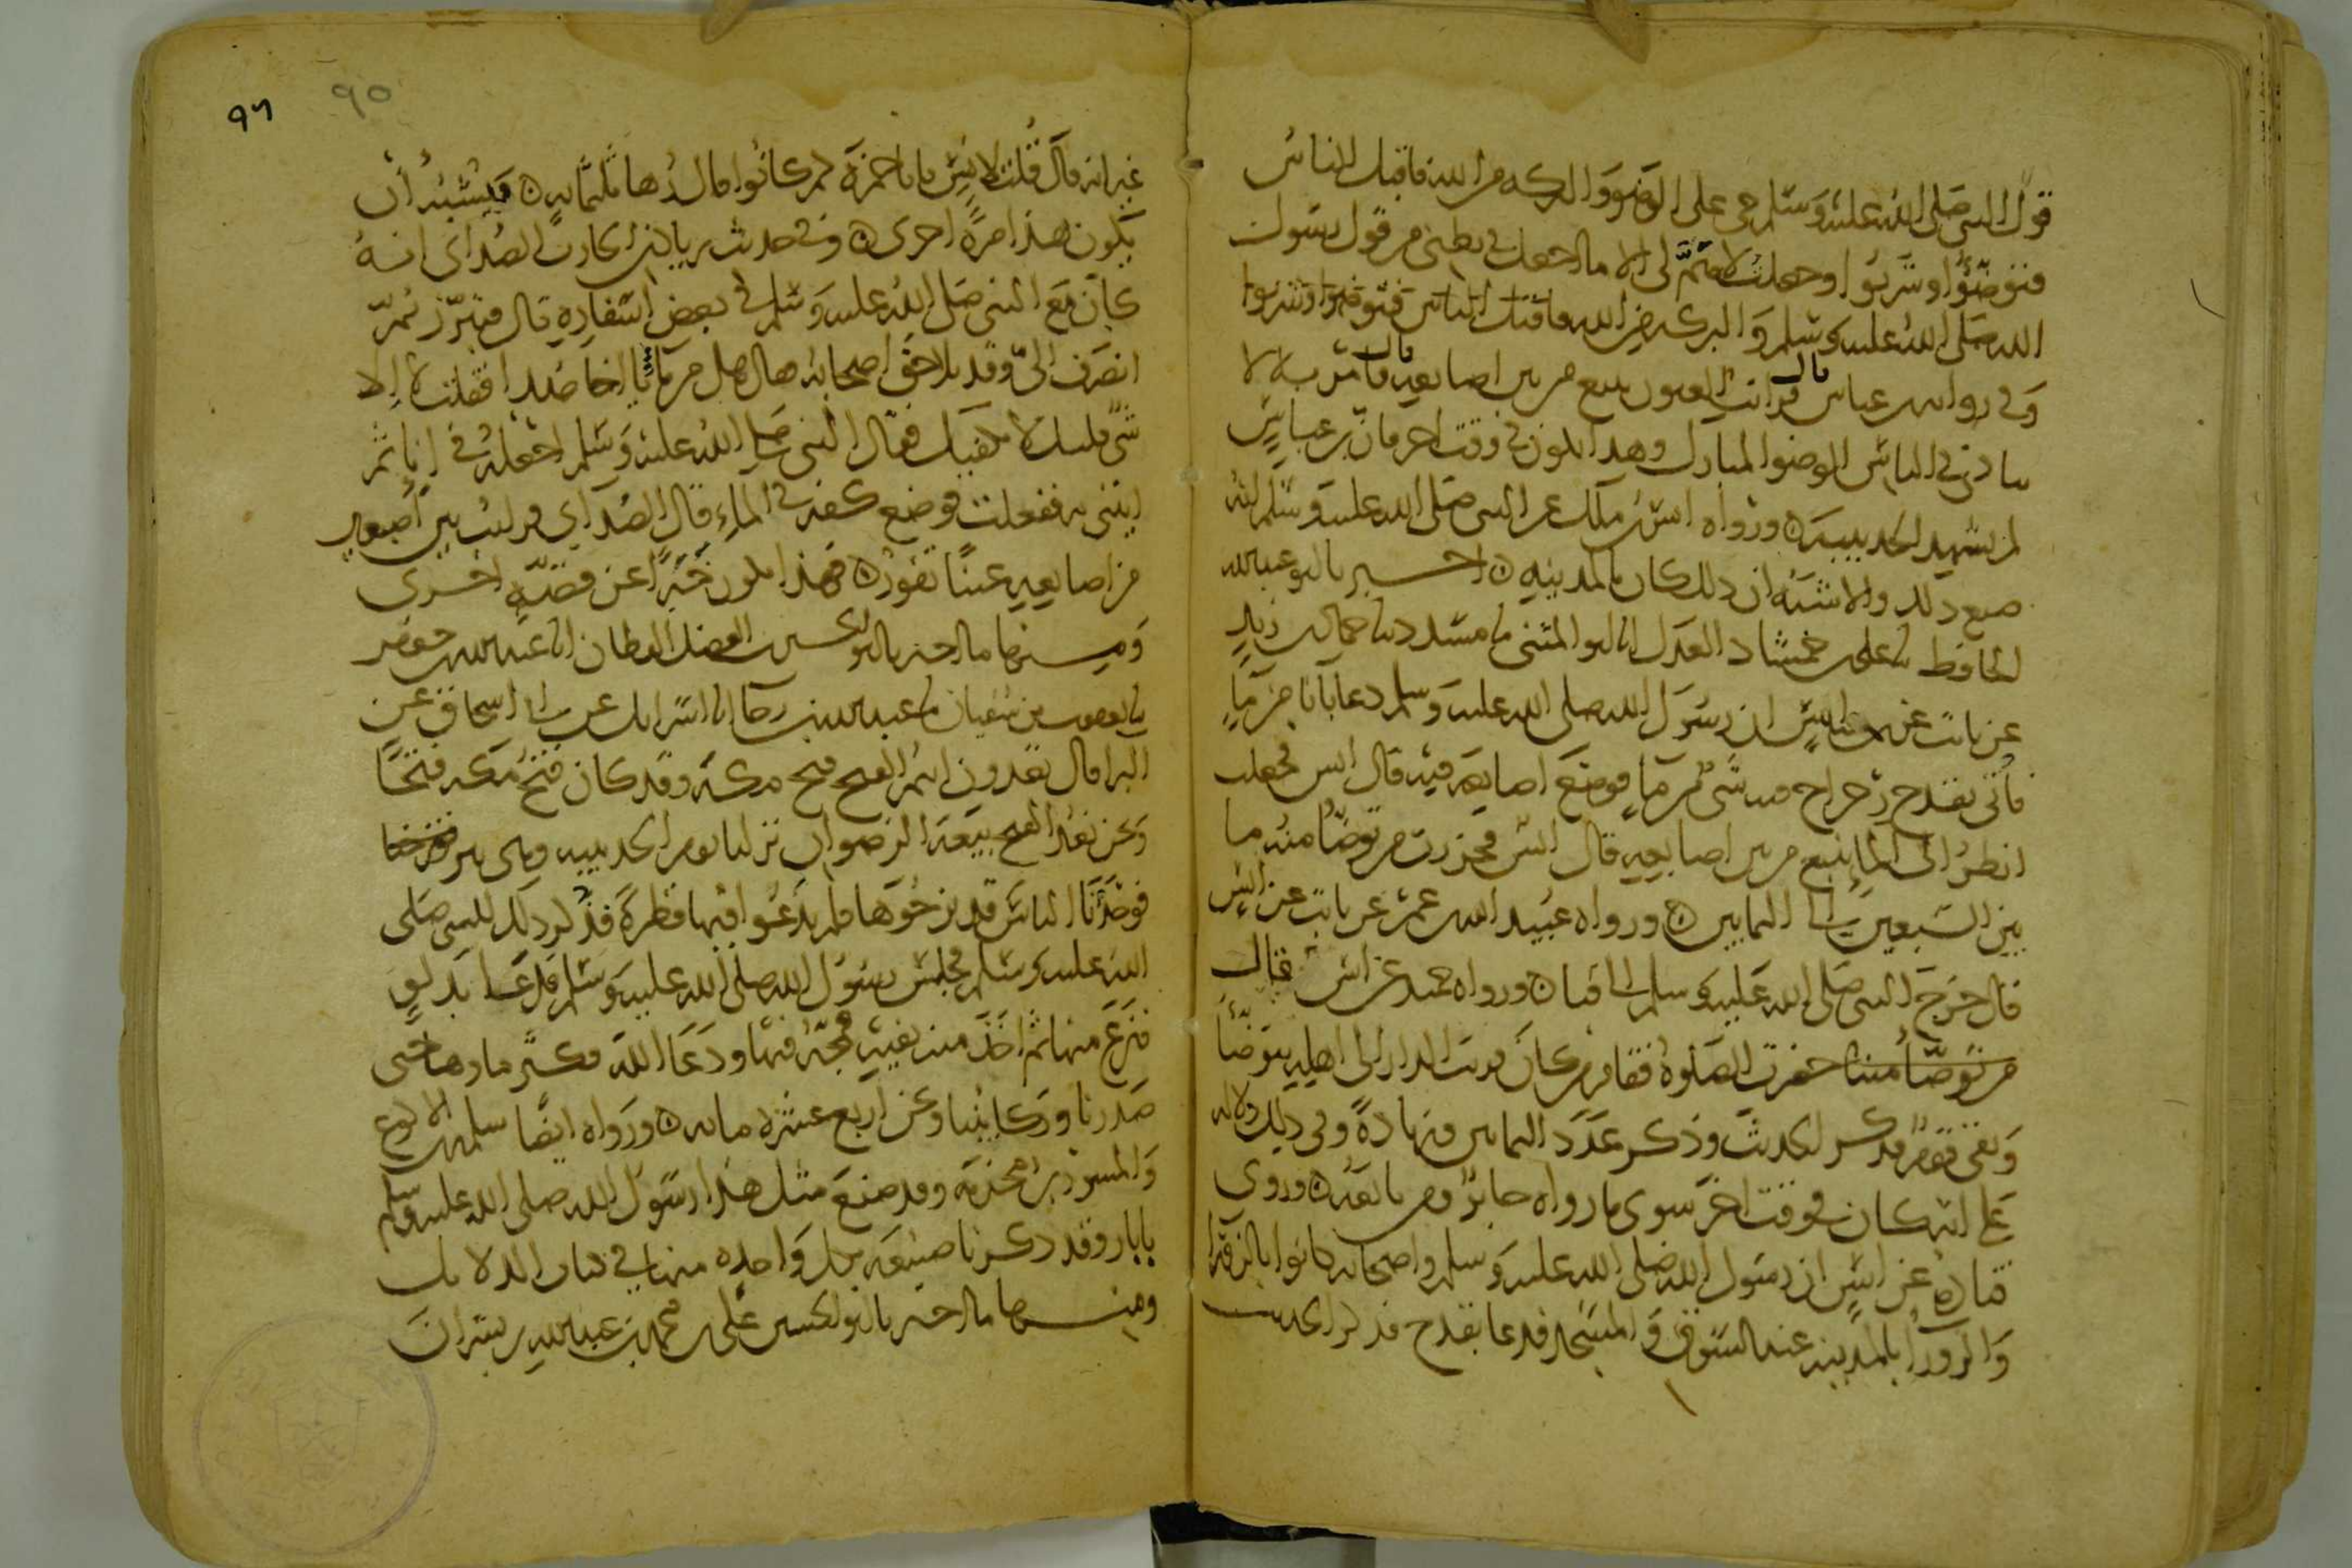 قول النبي صلى الله عليه وسلم حي على الوضوء والبركة من الله فاقبل الناس
فتوضؤا وشربوا وجعلت لا هم لي الا ما اجعل في بطني من قول رسول
الله صلى الله عليه وسلم والبركة من الله فاقبل الناس فتوضؤا وشربوا
وفي رواية ابن عباس قال فرأيت العيون تنبع من بين اصابعه قال فامر بلالا
ينادي في الناس الوضوء المبارك وهذا يكون في وقت اخر فان ابن عباس
لم يشهد الحديبية ورواه انس بن ملك عن النبي صلى الله عليه وسلم انه
صنع ذلك والاشبه ان ذلك كان بالمدينة اخبرنا ابو عبدالله
الحافظ نا علي بن حمشاد العدل انا ابو المثنى نا مسدد نا حماد بن زيد
عن ثابت عن انس ان رسول الله صلى الله عليه وسلم دعا باناء من ماء
فأتي بقدح رحراح فيه شي من ماء فوضع اصابعه فيه قال انس فجعلت
انظر الى الماء ينبع من بين اصابعه قال انس فحزرت من توضأ منه ما
بين السبعين الى الثمانين ورواه عبيد الله بن عمر عن ثابت عن انس
قال خرج النبي صلى الله عليه وسلم الى قبا ورواه حميد عن انس فقال
من توضأ منه حضرت الصلوة فقام من كان قريب الدار الى اهله يتوضأ
وبقي قوم فذكر الحديث وذكر عدد الثمانين وزيادة وفي ذلك دلالة
على انه كان في وقت اخر سوى ما رواه جابر ومن تابعه وروى
قتادة عن انس ان رسول الله صلى الله عليه وسلم واصحابه كانوا بالزوراء
والزوراء بالمدينة عند السوق والمسجد فدعا بقدح فذكر الحديث
٩٦
٩٥
غير انه قال قلت لانس يابا حمزة كم كانوا قال زها ثلثمائة ويشبه أن
يكون هذا مرة اخرى وفي حديث زياد بن الحارث الصدائي انه
كان مع النبي صلى الله عليه وسلم في بعض اسفاره قال فتبرز ثم
انصرف الي وقد تلاحق اصحابه فقال هل من ماء يا اخا صداء فقلت لا الا
شي قليل لا يكفيك فقال النبي صلى الله عليه وسلم اجعله في اناء ثم
ايتني به ففعلت فوضع كفه في الماء قال الصدائي فرأيت بين اصبعين
من اصابعه عينا تفور فهذا يكون خبرا عن قصة اخرى
ومنها ما اخبرنا ابو الحسين بن الفضل القطان انا عبدالله بن جعفر
نا يعقوب بن سفيان نا عبيد الله بن رجاء انا اسرايل عن ابي اسحاق عن
البراء قال تعدون انتم الفتح فتح مكة وقد كان فتح مكة فتحا
ونحن نعد الفتح بيعة الرضوان نزلنا يوم الحديبية وهي بير
فوجدنا الناس قد نزحوها فلم يدعوا فيها قطرة فذكر ذلك للنبي صلى
الله عليه وسلم فجلس رسول الله صلى الله عليه وسلم فدعا بدلو
فنزع منها ثم اخذ منه بفيه فمجه فيها ودعا الله فكثر ماؤها حتى
صدرنا وركابنا ونحن اربع عشرة مائة ورواه ايضا سلمة بن الاكوع
والمسور بن مخرمة وقد صنع مثل هذا رسول الله صلى الله عليه وسلم
بابار وقد ذكرنا صنيعه بكل واحدة منها في كتاب الدلايل
ومنها ما اخبرنا ابو الحسين علي بن محمد بن عبدالله بن بشران